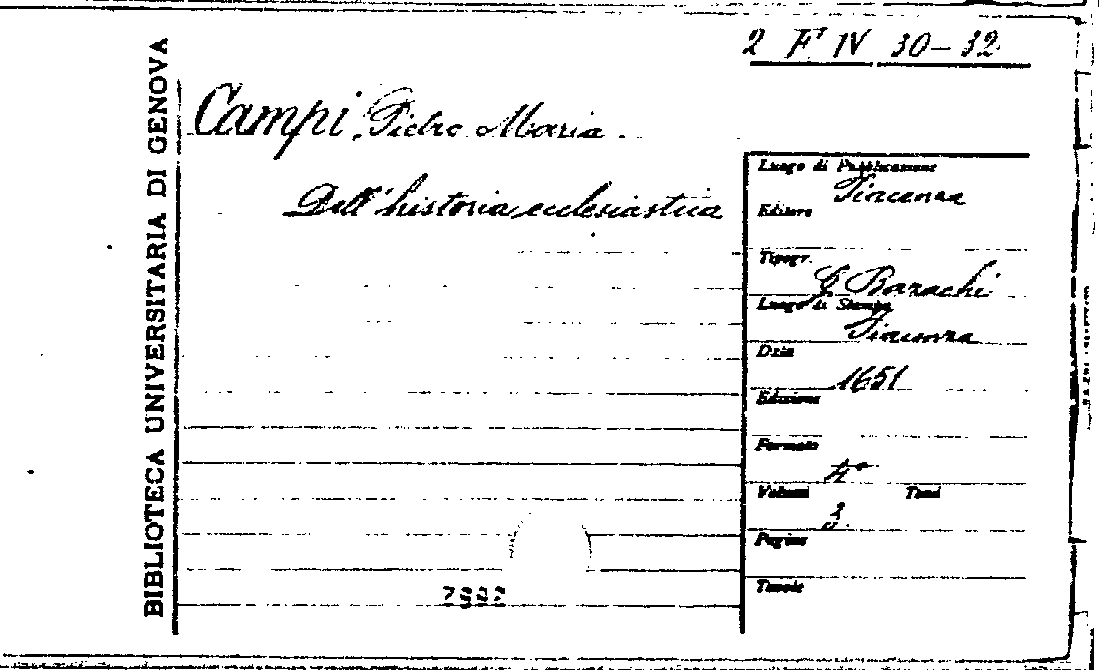 BIBLIOTECA UNIVERSITARIA DI GENOVA
2 F IV 30-32
Campi, Pietro Maria.
Dell'historia ecclesiastica
Luogo di Pubblicazione
Piacenza
Editore
Tipogr.
G Bazachi
Luogo di Stampa
Piacenza
Data
1651
Edizione
Formato
4°
Volumi Tomi
3.
Pagine
Tavole